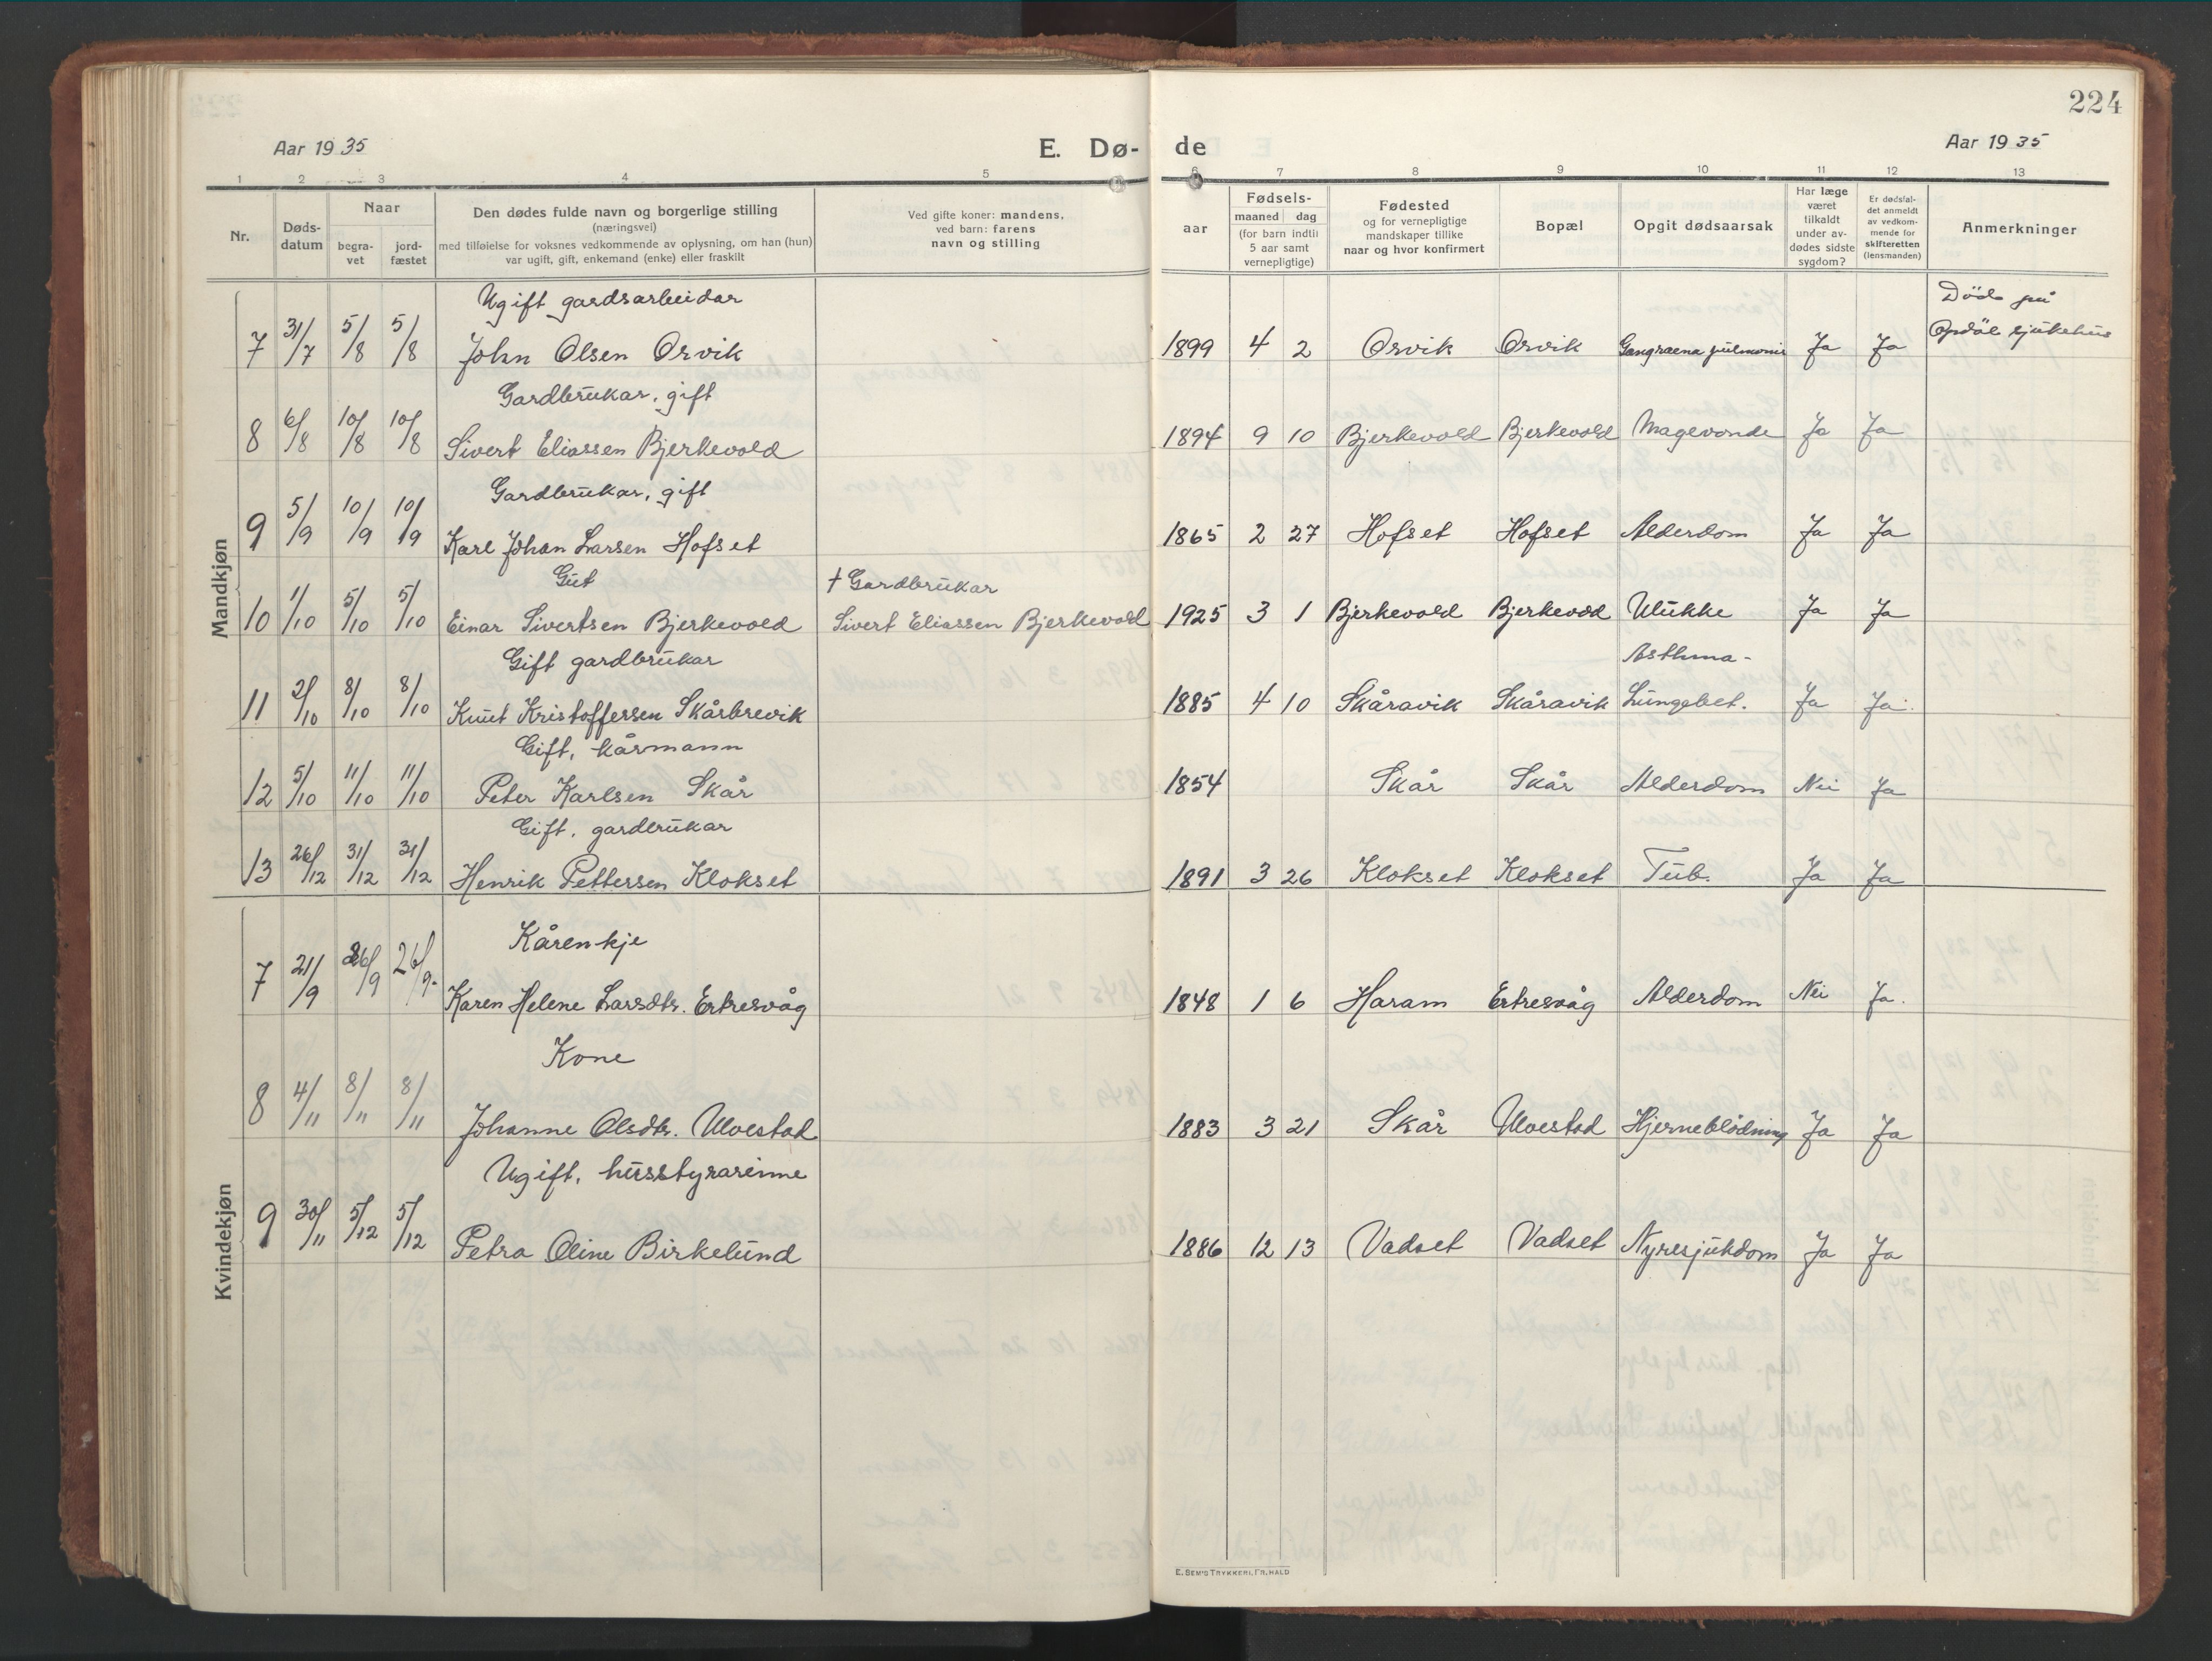 224
Aar 1935
E. Dø-
de
Aar 1935
1 2 3 4 5 6 7 8 9 10 11 12 13
Nr.
Døds-
datum
Naar
begra-
vet
jord-
fæstet
Den dødes fulde navn og borgerlige stilling
(næringsvei)
med tilføielse for voksnes vedkommende av oplysning, om han (hun)
var ugift, gift, enkemand (enke) eller fraskilt
Ved gifte koner: mandens,
ved barn: farens
navn og stilling
Fødsels-
aar
maaned dag
(for barn indtil
5 aar samt
vernepligtige)
Fødested
og for vernepligtige
mandskaper tillike
naar og hvor konfirmert
Bopæl
Opgit dødsaarsak
Har læge
været
tilkaldt
under av-
dødes sidste
sygdom?
Er dødsfal-
det anmeldt
av vedkom-
mende for
skifteretten
(lensmanden)
Anmerkninger
Mandkjøn
Ugift gardsarbeidar
Døde på
Opdöl sjukehus
7 31/7 5/8 5/8 John Olsen Orvik 1899 4 2 Orvik Orvik Gangraena pulmonis Ja Ja
Gardbrukar, gift
8 6/8 10/8 10/8 Sivert Eliassen Bjerkevold 1894 9 10 Bjerkevold Bjerkevold Magevonde Ja Ja
Gardbrukar, gift
9 5/9 10/9 10/9 Karl Johan Larsen Hofset 1865 2 27 Hofset Hofset Alderdom Ja Ja
Gut † Gardbrukar
10 1/10 5/10 5/10 Einar Sivertsen Bjerkevold Sivert Eliassen Bjerkevold 1925 3 1 Bjerkevold Bjerkevold Ulukke Ja Ja
Gift gardbrukar Asthma-
11 2/10 8/10 8/10 Knut Kristoffersen Skårbrevik 1885 4 10 Skåravik Skåravik Lungebet. Ja Ja.
Gift, kårmann
12 5/10 11/10 11/10 Peter Karlsen Skår 1854 Skår Skår Alderdom Nei Ja
Gift, gardbrukar
13 26/12 31/12 31/12 Henrik Pettersen Klokset 1891 3 26 Klokset Klokset Tub. Ja Ja
Kvindekjøn
Kårenkje
7 21/9 26/9 26/9. Karen Helene Larsdtr. Ertresvåg 1848 1 6 Haram Ertresvåg Alderdom Nei Ja.
Kone
8 4/11 8/11 8/11 Johanne Olsdtr. Ulvestad 1883 3 21 Skår Ulvestad Hjerneblödning Ja Ja
Ugift, husstyrarinne
9 30/11 5/12 5/12 Petra Oline Birkelund 1886 12 13 Vadset Vadset Nyresjukdom Ja Ja
E. SEM'S TRYKKERI, FR.HALD